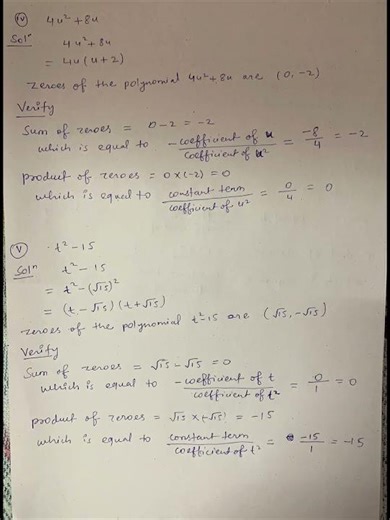 (iv) 4u² + 8u
Solⁿ 4u² + 8u
= 4u (u + 2)
zeroes of the polynomial 4u² + 8u are (0, -2)
Verify
Sum of zeroes = 0 - 2 = -2
which is equal to - coefficient of u / coefficient of u² = -8/4 = -2
product of zeroes = 0 x (-2) = 0
which is equal to constant term / coefficient of u² = 0/4 = 0
(v) t² - 15
Solⁿ t² - 15
= t² - (√15)²
= (t - √15) (t + √15)
zeroes of the polynomial t² - 15 are (√15, -√15)
Verify
Sum of zeroes = √15 - √15 = 0
which is equal to - coefficient of t / coefficient of t² = - 0/1 = 0
product of zeroes = √15 x (-√15) = -15
which is equal to constant term / coefficient of t² = -15/1 = -15